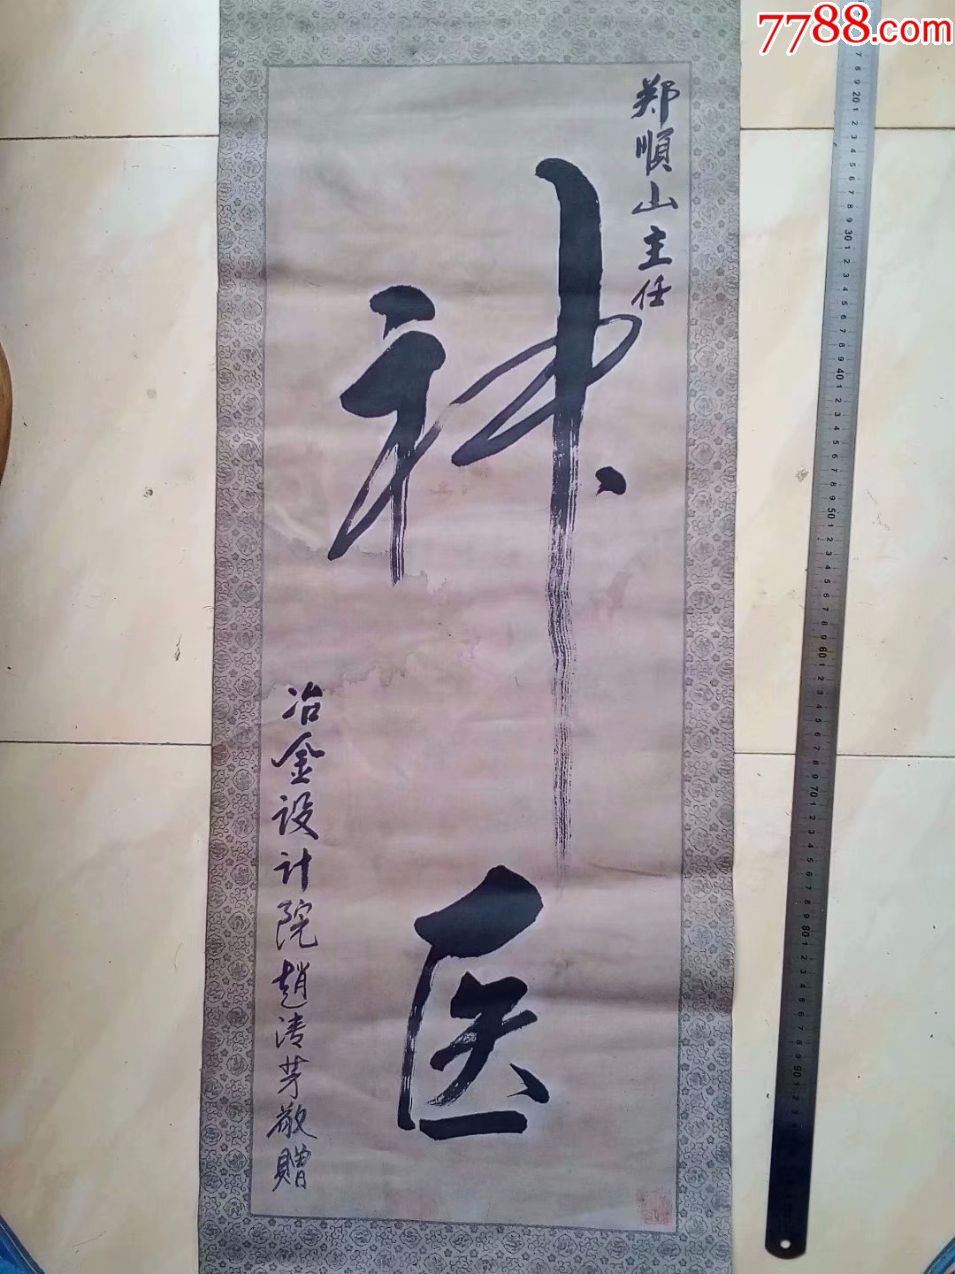 7788.com
郑順山主任
神医
冶金设计院趙清芳敬贈